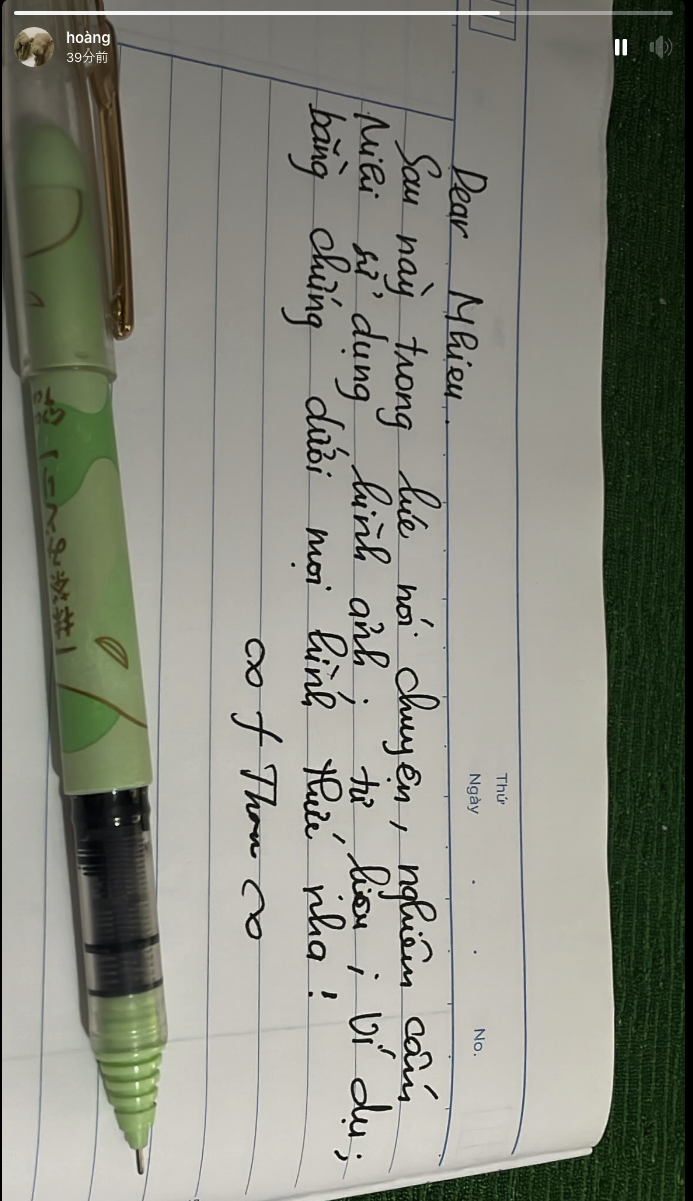 hoàng
39分前
Thứ
Ngày
No.
Dear Nhieu.
Sau này trong lúc nói chuyện, nghiêm cấm
Nhiêu sử dụng hình ảnh; tư liệu; ví dụ;
bằng chứng dưới mọi hình thức nha!